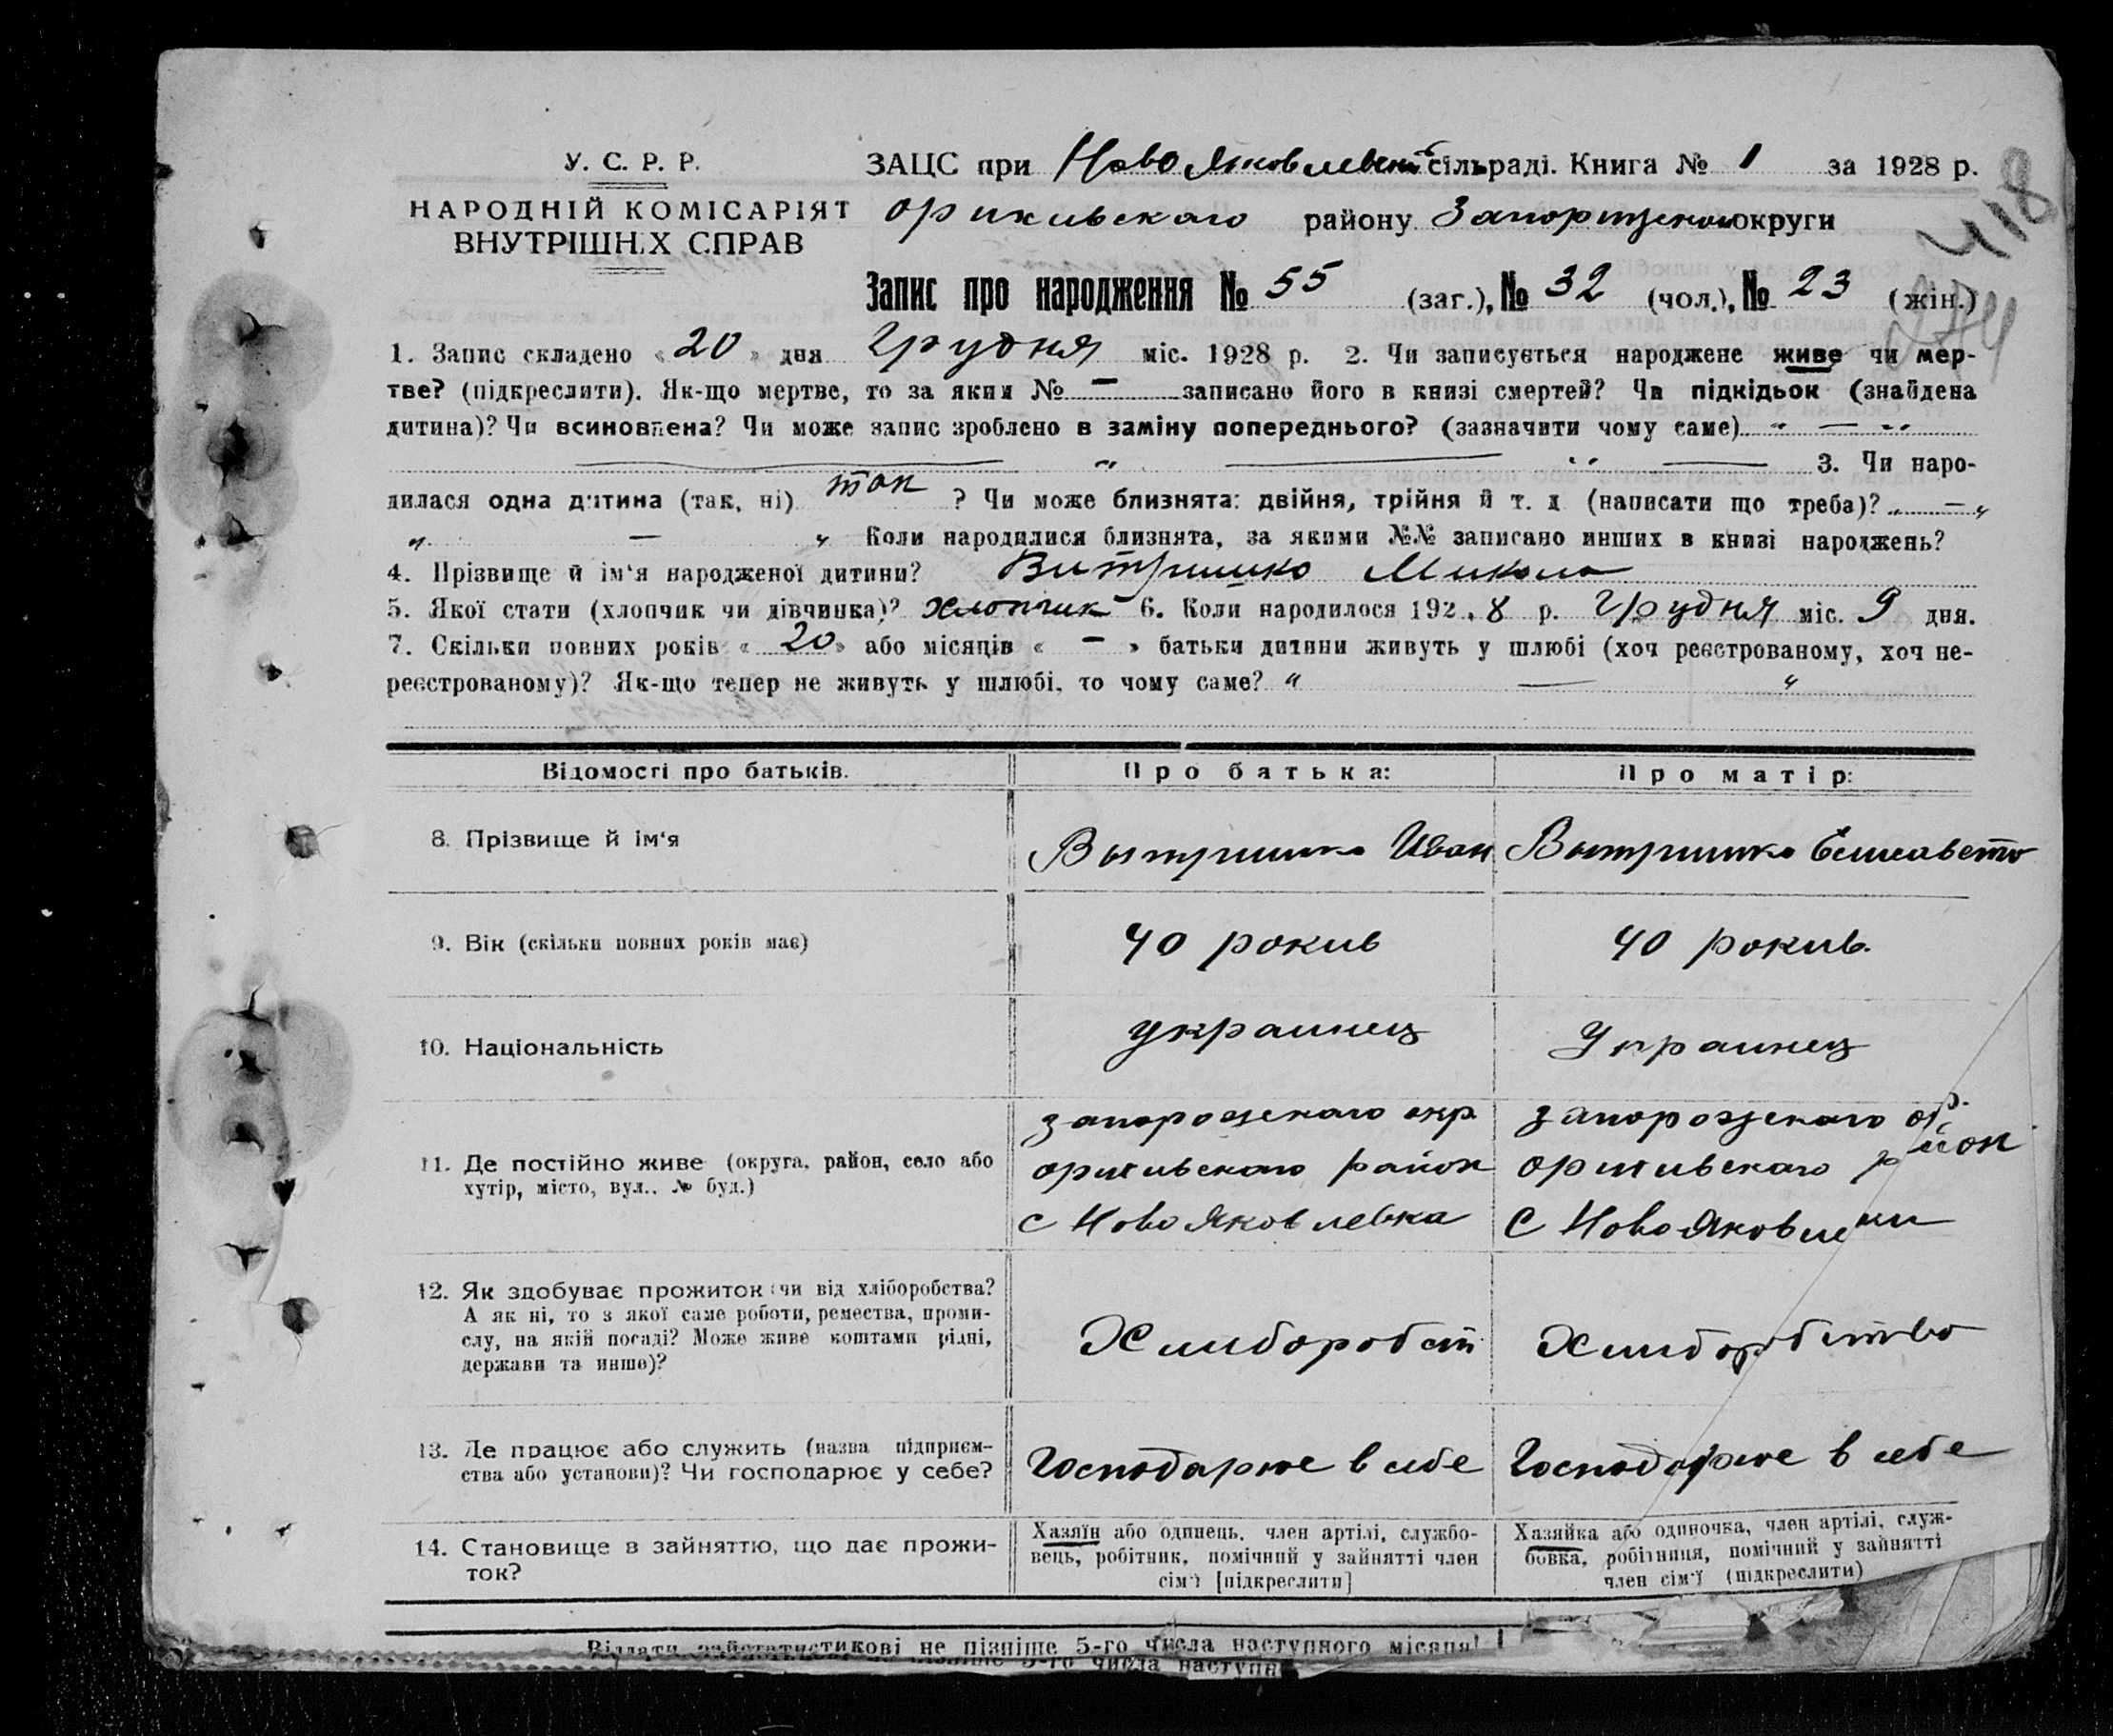 У. С. Р. Р.
НАРОДНІЙ КОМІСАРІЯТ
ВНУТРІШНІХ СПРАВ
ЗАЦС при Ново Яковлевский сільраді. Книга № 1 за 1928 р.
орикивскаго району Запоризскаго округи
418
274
Запис про народження № 55 (заг.), № 32 (чол.), № 23 (жін.)
1. Запис складено « 20 » дня Грудня міс. 1928 р. 2. Чи записується народжене живе чи мер-
тве? (підкреслити). Як-що мертве, то за яким № — записано його в книзі смертей? Чи підкідьок (знайдена
дитина)? Чи всиновлена? Чи може запис зроблено в заміну попереднього? (зазначити чому саме) „ — „
„ — „ — 3. Чи наро-
дилася одна дитина (так, ні) так ? Чи може близнята: двійня, трійня й т. д. (написати що треба)? „ — „
„ — „ Коли народилися близнята, за якими №№ записано инших в книзі народжень?
4. Прізвище й ім'я народженої дитини? Витришко Микола
5. Якої стати (хлопчик чи дівчинка)? хлопчик 6. Коли народилося 192 8 р. Грудня міс. 9 дня.
7. Скільки повних років « 20 » або місяців « — » батьки дитини живуть у шлюбі (хоч реєстрованому, хоч не-
реєстрованому)? Як-що тепер не живуть у шлюбі, то чому саме? „ — „
Відомості про батьків.
Про батька:
Про матір:
8. Прізвище й ім'я
Вытришко Иван
Вытришко Елисавета
9. Вік (скільки повних років має)
40 рокив
40 рокив.
10. Національність
украинец
Украинец
11. Де постійно живе (округа, район, село або
хутір, місто, вул., № буд.)
запорозскаго окр
орикивскаго район
с Ново Яковлевка
запорозскаго ок.
орикивскаго район
с Ново Яковлеки
12. Як здобуває прожиток: чи від хліборобства?
А як ні, то з якої саме роботи, ремества, проми-
слу, на якій посаді? Може живе коштами рідні,
держави та инше)?
Хлиборобст
Хлиборобство
13. Де працює або служить (назва підприєм-
ства або установи)? Чи господарює у себе?
Господарюе в себе
Господарюе в себе
14. Становище в зайняттю, що дає прожи-
ток?
Хазяїн або одинець, член артілі, службо-
вець, робітник, помічний у зайнятті член
сім'ї [підкреслити]
Хазяйка або одиночка, член артілі, служ-
бовка, робітниця, помічний у зайнятті
член сім'ї (підкреслити)
Віддати райстатистикові не пізніше 5-го числа наступного місяця!
5-го числа наступн